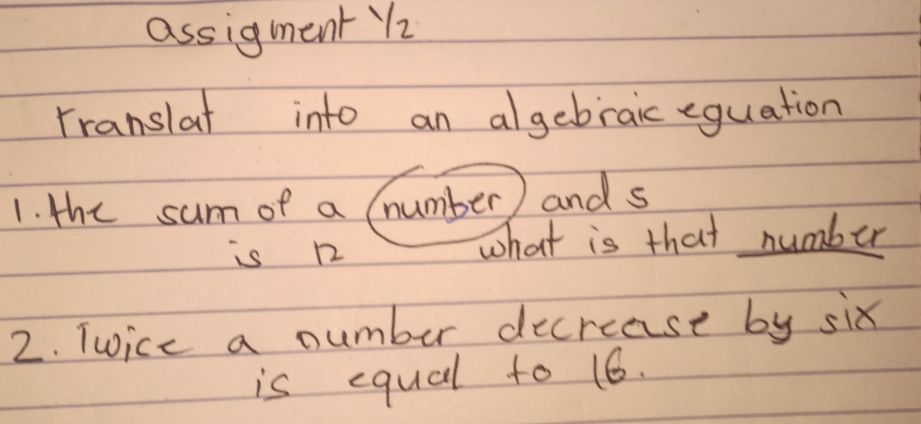 assigment 1/2
translat into an algebraic equation
1. the sum of a number and 5
is 12 what is that number
2. Twice a number decrease by six
is equal to 16.